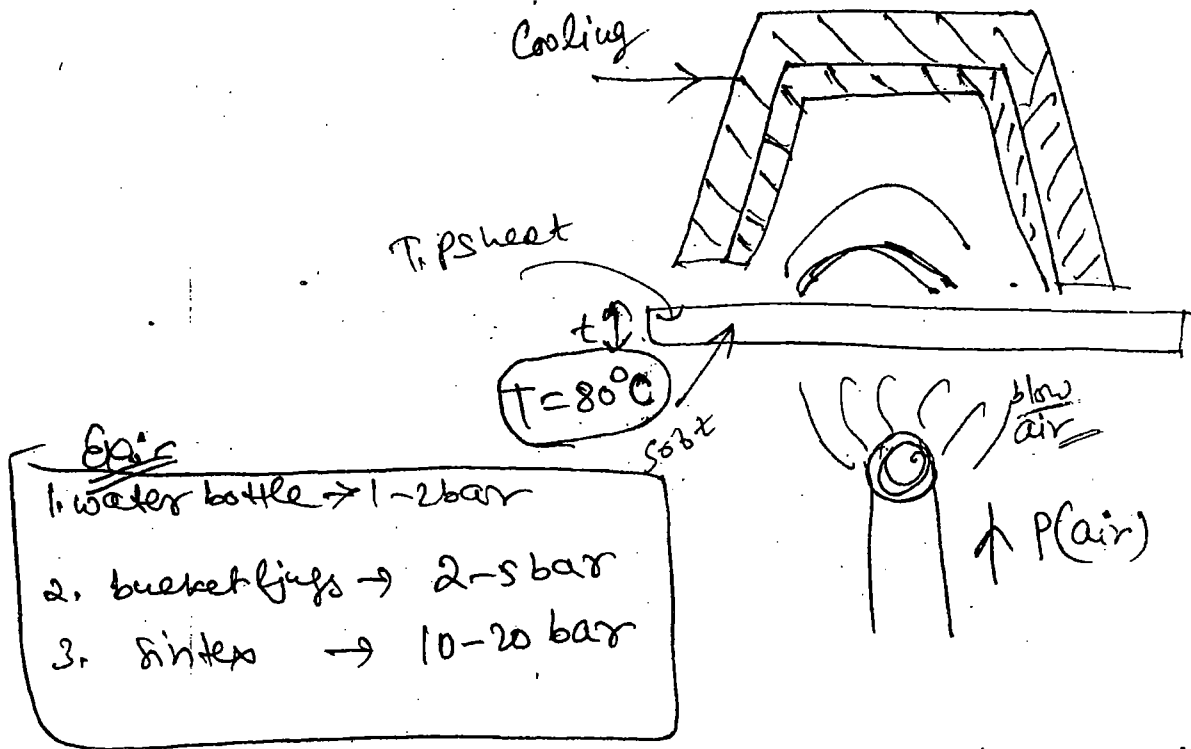 Cooling
T.P sheet
t
T = 80°C
soft
blow
air
P(air)
1. water bottle → 1-2 bar
2. bucket & jugs → 2-5 bar
3. Sintex → 10-20 bar